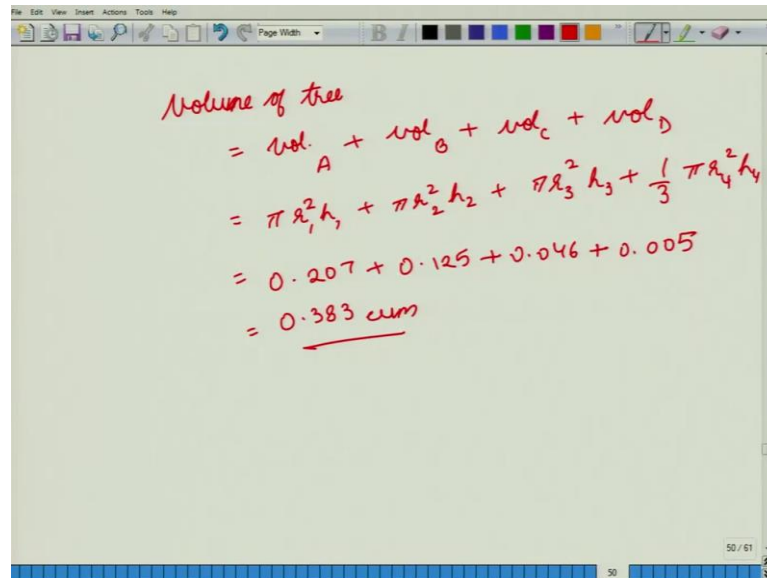 File Edit View Insert Actions Tools Help
Page Width
B I
Volume of tree
= vol. A + vol B + vol C + vol D
= π r₁² h₁ + π r₂² h₂ + π r₃² h₃ + 1/3 π r₄² h₄
= 0.207 + 0.125 + 0.046 + 0.005
= 0.383 cum
50 / 61
50